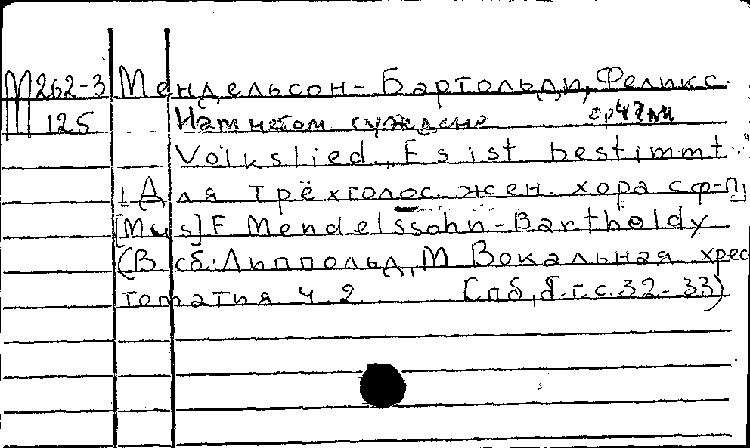 М262-3 Мендельсон-Бартольди, Феликс.
М 125 Нам нетом суждено
Volkslied. Es ist bestimmt...
[Для трёхголос. жен. хора с ф-п]
[Mus] F. Mendelssohn-Bartholdy
(В сб: Липпольд, М. Вокальная хрес
томатия ч. 2. Спб, б.г. с. 32-33)